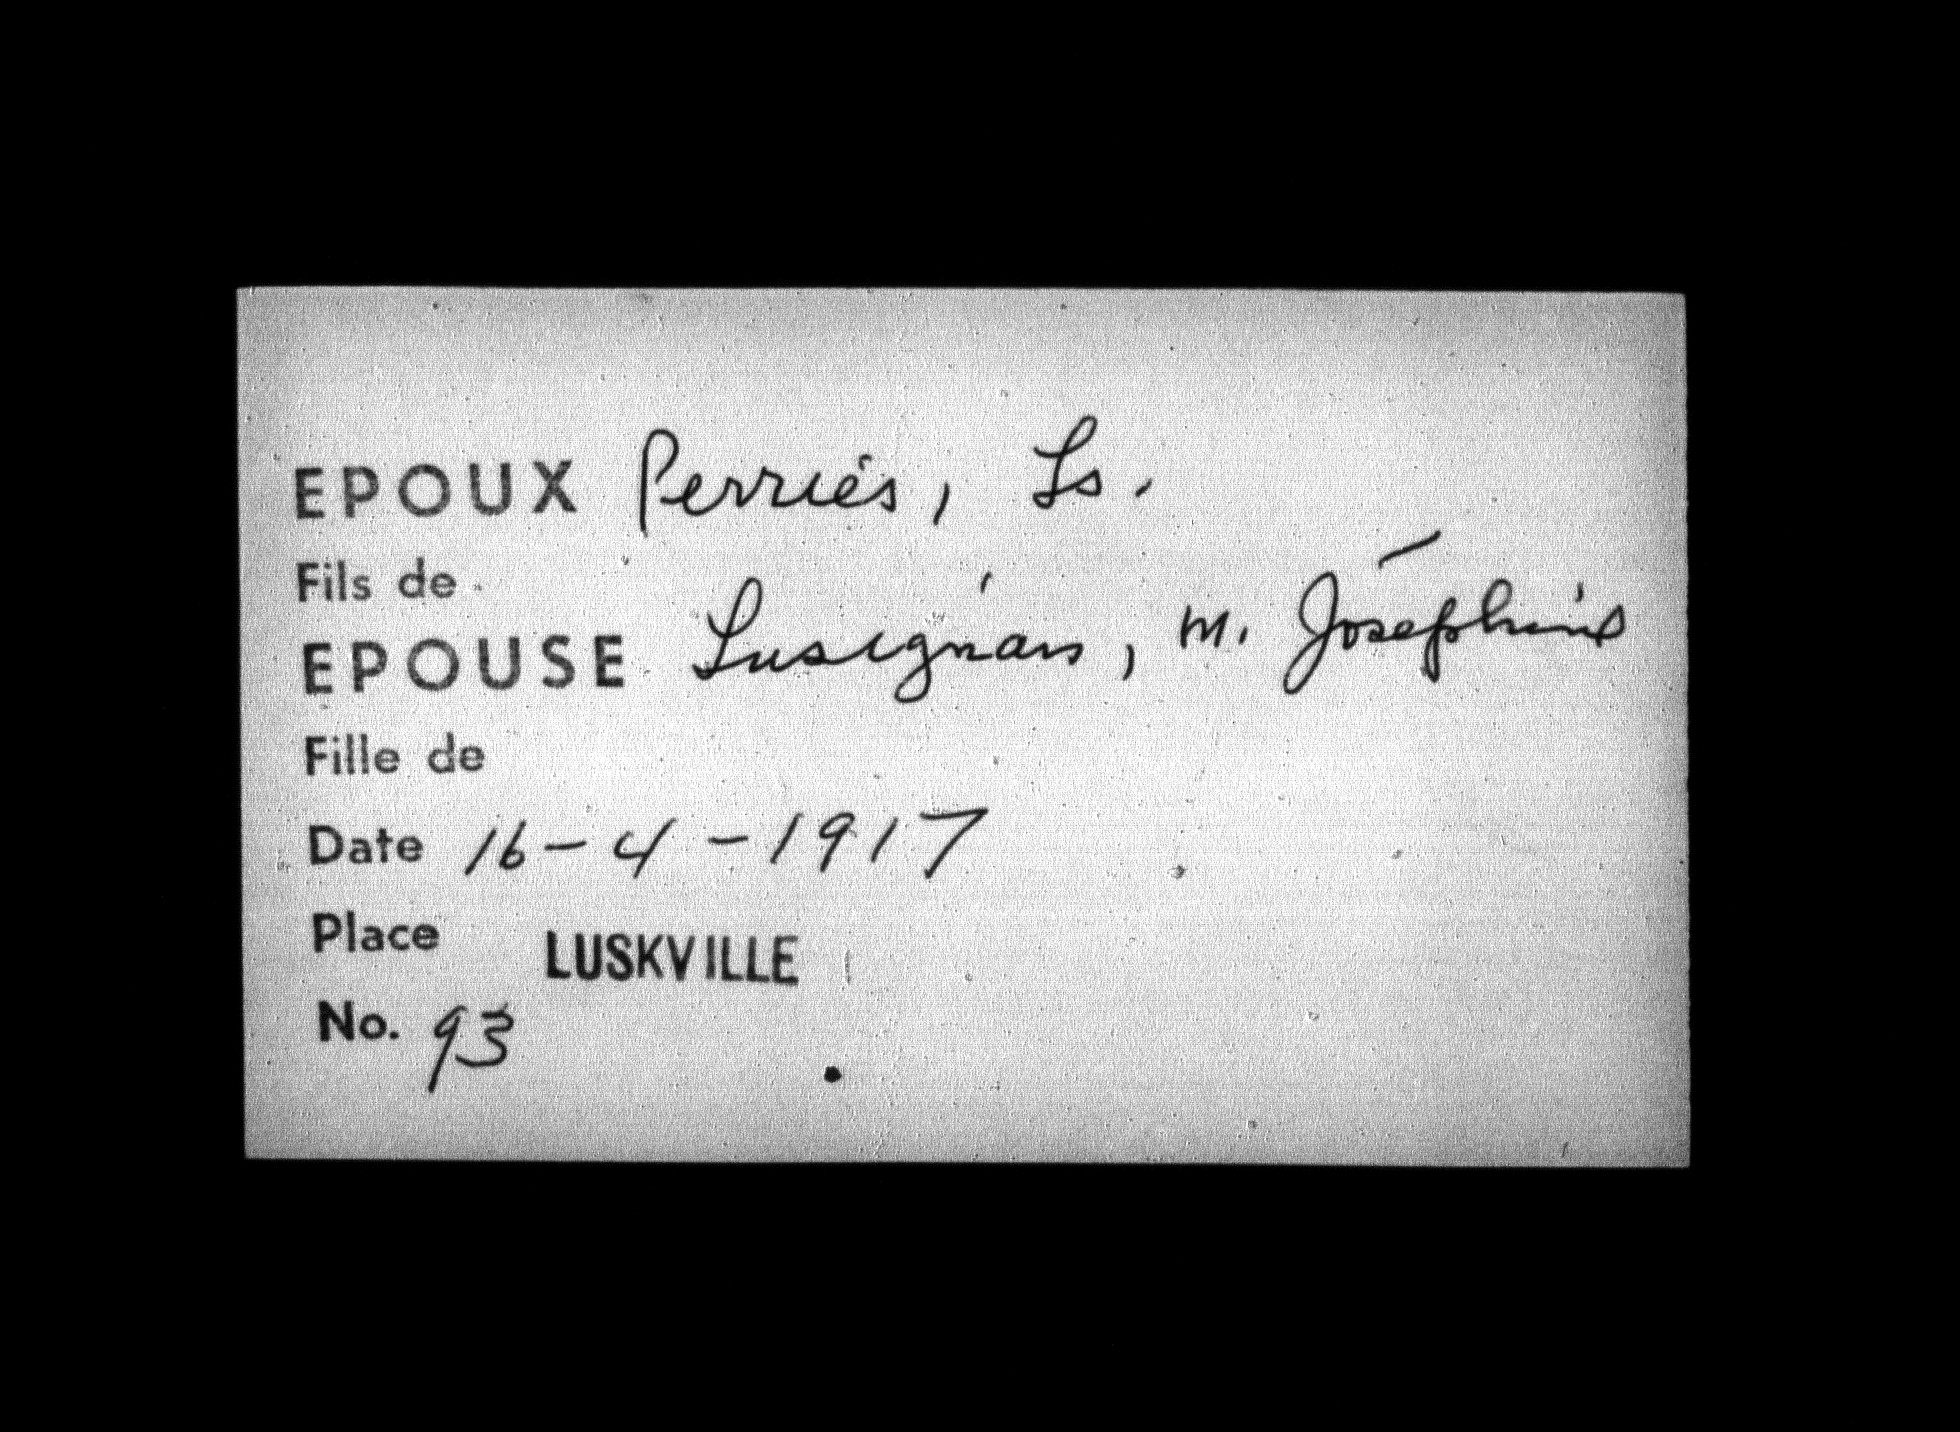 EPOUX Perriés, Ls.
Fils de
EPOUSE Lusignan, M. Joséphine
Fille de
Date 16-4-1917
Place LUSKVILLE
No. 93